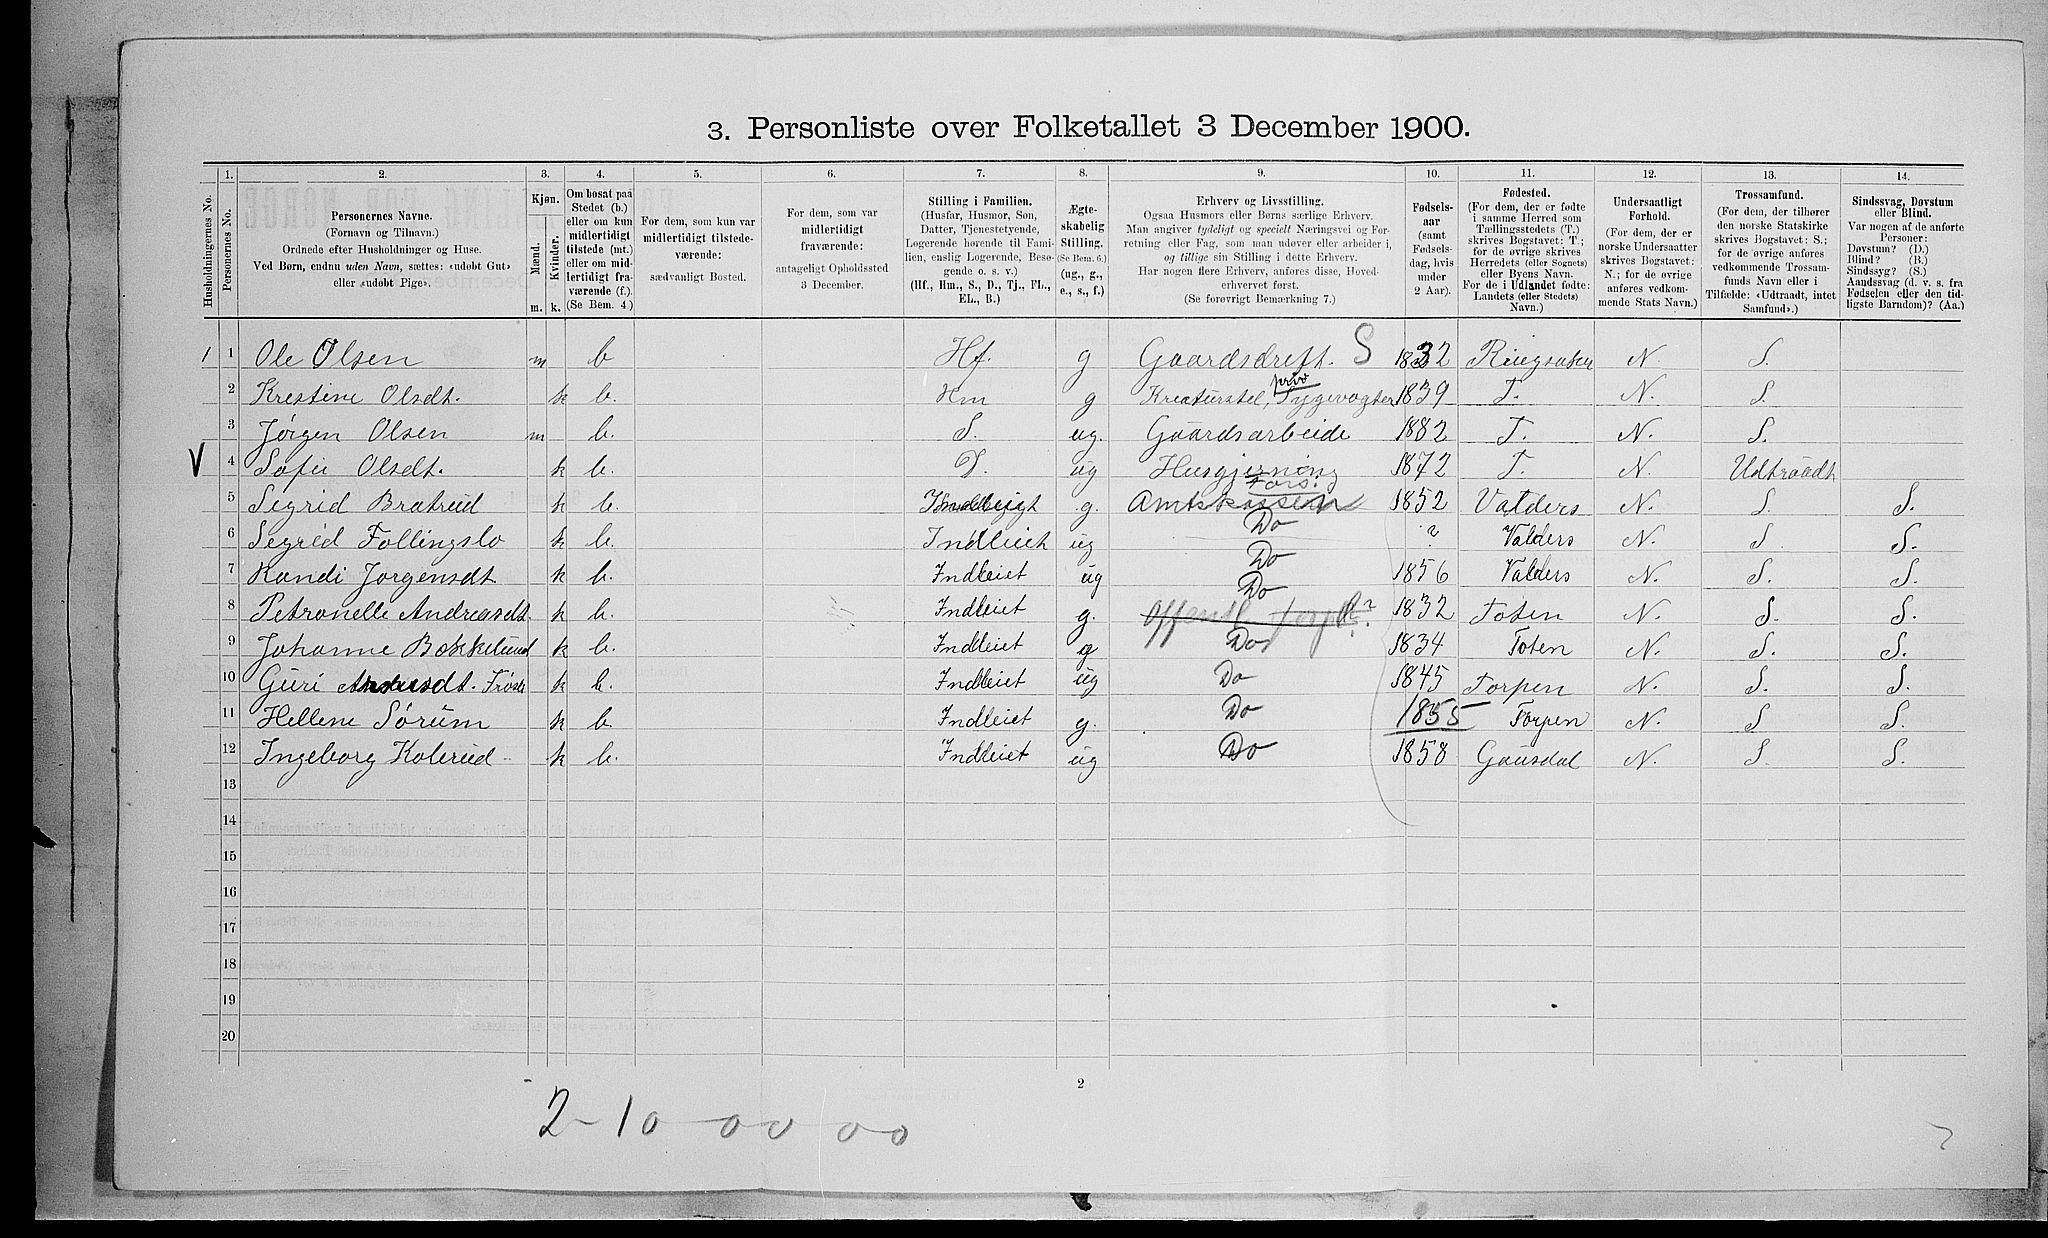 3. Personliste over Folketallet 3 December 1900.
1. 2. 3. 4. 5. 6. 7. 8. 9. 10. 11. 12. 13. 14.
Husholdningernes No.
Personernes No.
Personernes Navne.
(Fornavn og Tilnavn.)
Ordnede efter Husholdninger og Huse.
Ved Børn, endnu uden Navn, sættes: «udøbt Gut»
eller «udøbt Pige».
Kjøn.
Mænd.
Kvinder.
m. k.
Om bosat paa
Stedet (b.)
eller om kun
midlertidigt
tilstede (mt.)
eller om mid-
lertidigt fra-
værende (f.).
(Se Bem. 4.)
For dem, som kun var
midlertidigt tilstede-
værende:
sædvanligt Bosted.
For dem, som var
midlertidigt
fraværende:
antageligt Opholdssted
3 December.
Stilling i Familien.
(Husfar, Husmor, Søn,
Datter, Tjenestetyende,
Logerende hørende til Fami-
lien, enslig Logerende, Besø-
gende o. s. v.)
(Hf., Hm., S., D., Tj., FL.,
EL., B.)
Ægte-
skabelig
Stilling.
(Se Bem. 6.)
(ug., g.,
e., s., f.)
Erhverv og Livsstilling.
Ogsaa Husmors eller Børns særlige Erhverv.
Man angiver tydeligt og specielt Næringsvei og For-
retning eller Fag, som man udøver eller arbeider i,
og tillige sin Stilling i dette Erhverv.
Har nogen flere Erhverv, anføres disse, Hoved-
erhvervet først.
(Se forøvrigt Bemærkning 7.)
Fødsels-
aar
(samt
Fødsels-
dag, hvis
under
2 Aar).
Fødested.
(For dem, der er fødte
i samme Herred som
Tællingsstedets (T.)
skrives Bogstavet: T.;
for de øvrige skrives
Herredets (eller Sognets)
eller Byens Navn.
For de i Udlandet fødte:
Landets (eller Stedets)
Navn.)
Undersaatligt
Forhold.
(For dem, der er
norske Undersaatter
skrives Bogstavet:
N.; for de øvrige
anføres vedkom-
mende Stats Navn.)
Trossamfund.
(For dem, der tilhører
den norske Statskirke
skrives Bogstavet: S.;
for de øvrige anføres
vedkommende Trossam-
funds Navn eller i
Tilfælde: «Udtraadt, intet
Samfund».)
Sindssvag, Døvstum
eller Blind.
Var nogen af de anførte
Personer:
Døvstum? (D.)
Blind? (B.)
Sindssyg? (S.)
Aandssvag (d. v. s. fra
Fødselen eller den tid-
ligste Barndom)? (Aa.)
1 1 Ole Olsen m b Hf. g Gaardsdrift. S 1832 Ringsaker N. S.
2 Krestine Olsdt. k b. Hm g Kreaturstel, priv Sygevogter 1839 T. N. S.
3 Jørgen Olsen m b. S. ug. Gaardsarbeide 1882 T. N. S.
V 4 Sofie Olsdt. k b. D. ug Husgjerning 1872 T. N. Udtraadt
5 Segrid Bratrud k b. Indleigt g. Fors. Amtskassen 1852 Valders N. S. S.
6 Segrid Follingslo k b. Indleiet ug Do ? Valders N. S S.
7 Randi Jorgensdt k b. Indleiet ug Do 1856 Valders N. S. S.
8 Petronelle Andreasdt. k b. Indleiet g. Do 1832 Toten N. S. S.
9 Johanne Bekkelund k b. Indleiet g Do 1834 Toten N. S. S.
10 Guri k b. Indleiet ug Do 1845 Torpen N. S. S.
11 Hellene Sørum k b Indleiet g. Do 1855 Torpen N. S S.
12 Ingeborg Kolerud k b. Indleiet ug Do 1858 Gausdal N. S. S.
13
14
15
16
17
18
19
20
2
2-10 00 00